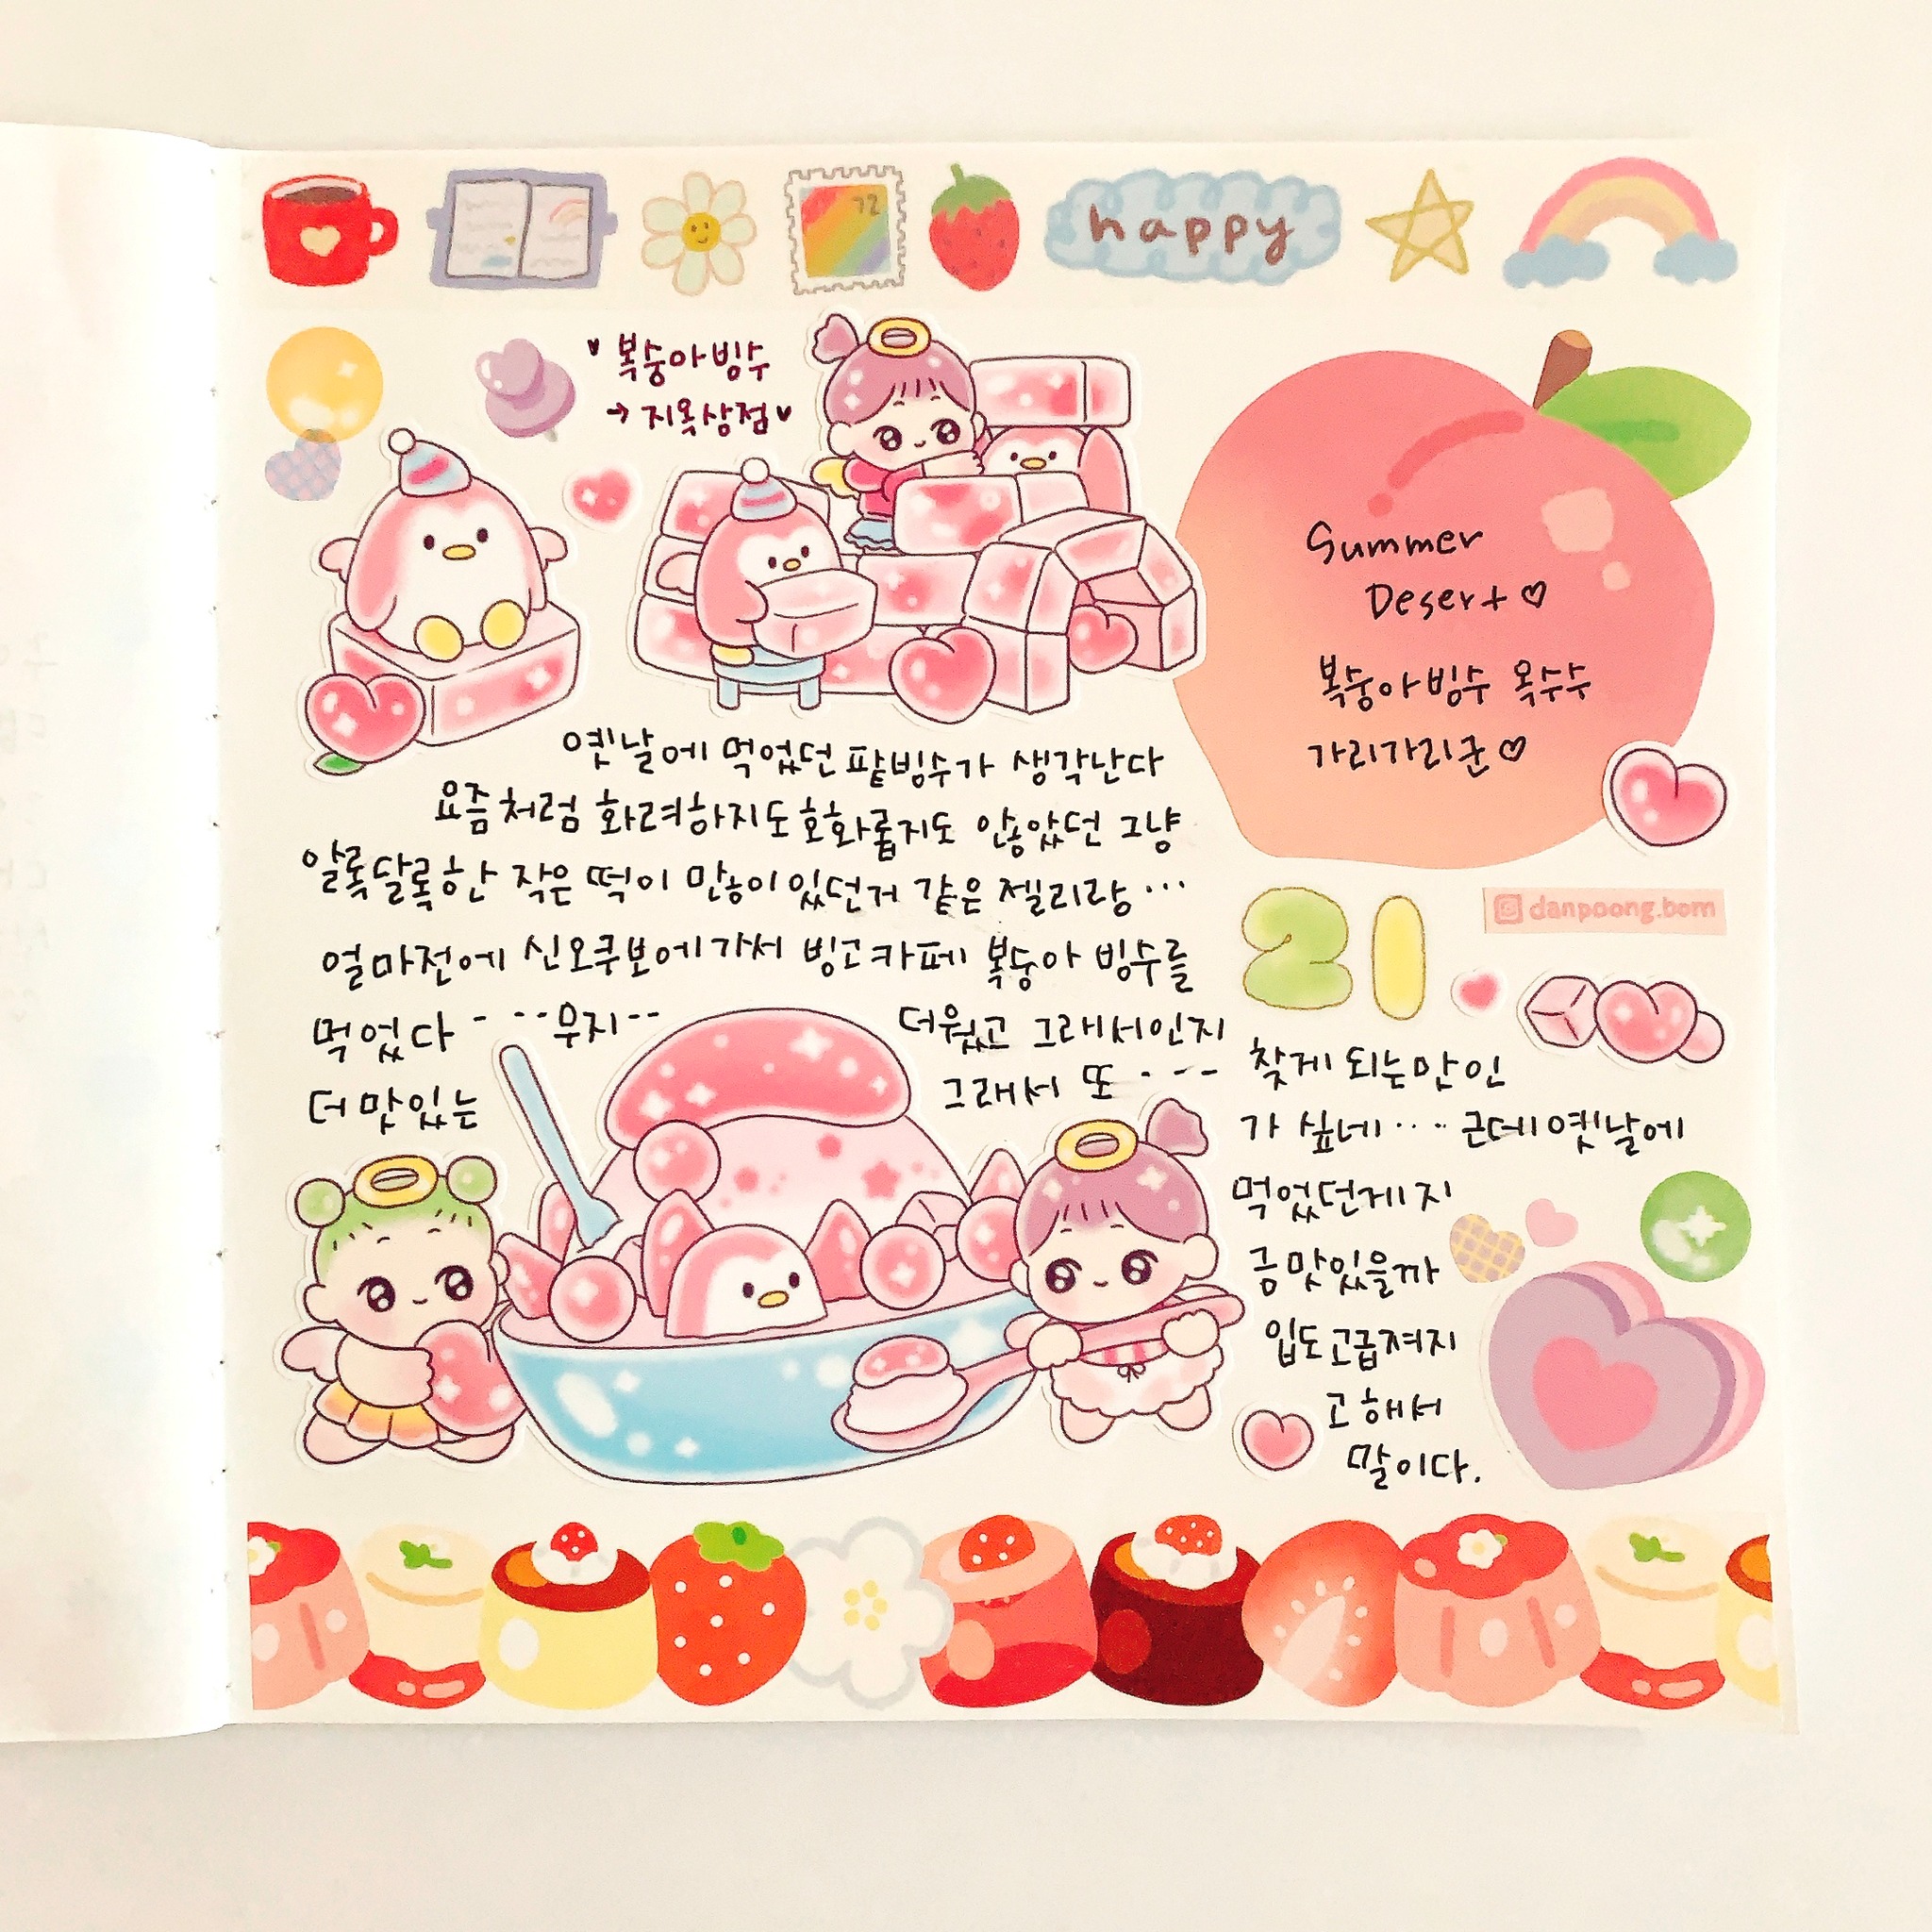 happy
72
♥ 복숭아빙수
→ 지옥상점♥
Summer
Desert ♡
복숭아빙수 옥수수
가리가리군♡
옛날에 먹었던 팥빙수가 생각난다
요즘처럼 화려하지도 호화롭지도 않았던 그냥
알록달록한 작은 떡이 많이 있었던거 같은 젤리랑 ···
얼마전에 신오쿠보에가서 빙고카페 복숭아 빙수를
먹었다 - - -- 무지 --
더웠고 그래서인지
더 맛있는
그래서 또 - - -
21
danpoong.bom
찾게 되는만인
가 싶네 ···· 근데 옛날에
먹었던게 지
금 맛있을까
입도고급져지
고 해서
말이다.